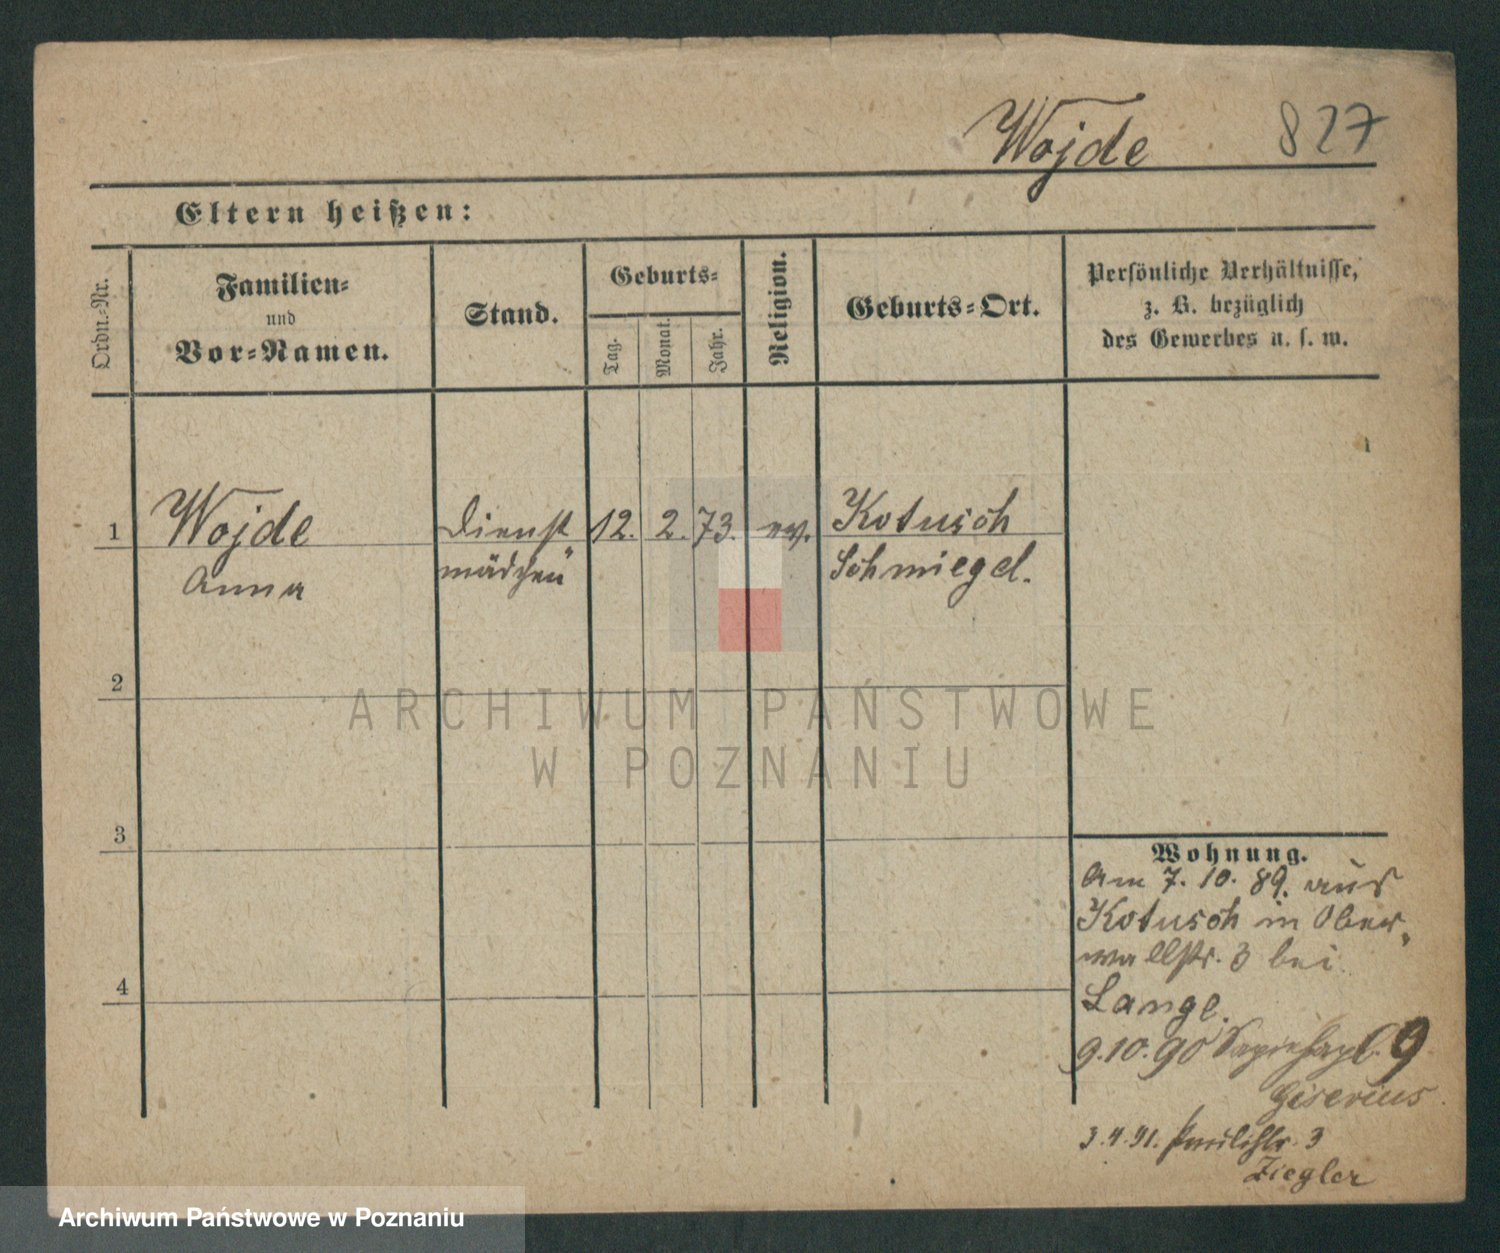 Wojde 827
Eltern heißen:
Ordn.-Nr.
Familien-
und
Vor-Namen.
Stand.
Geburts-
Tag.
Monat.
Jahr.
Religion.
Geburts-Ort.
Persönliche Verhältnisse,
z. B. bezüglich
des Gewerbes u. s. w.
1 Wojde Dienst 12. 2. 73. ev. Kotusch
Anna mädchen Schmiegel.
2
3
4
ARCHIWUM PAŃSTWOWE
W POZNANIU
Wohnung.
Am 7. 10. 89. aus
Kotusch in Ober-
wallstr. 3 bei
Lange.
9.10.90 Sapiehapl. 9
Giserius.
3.4.91. Paulistr. 3
Ziegler
Archiwum Państwowe w Poznaniu